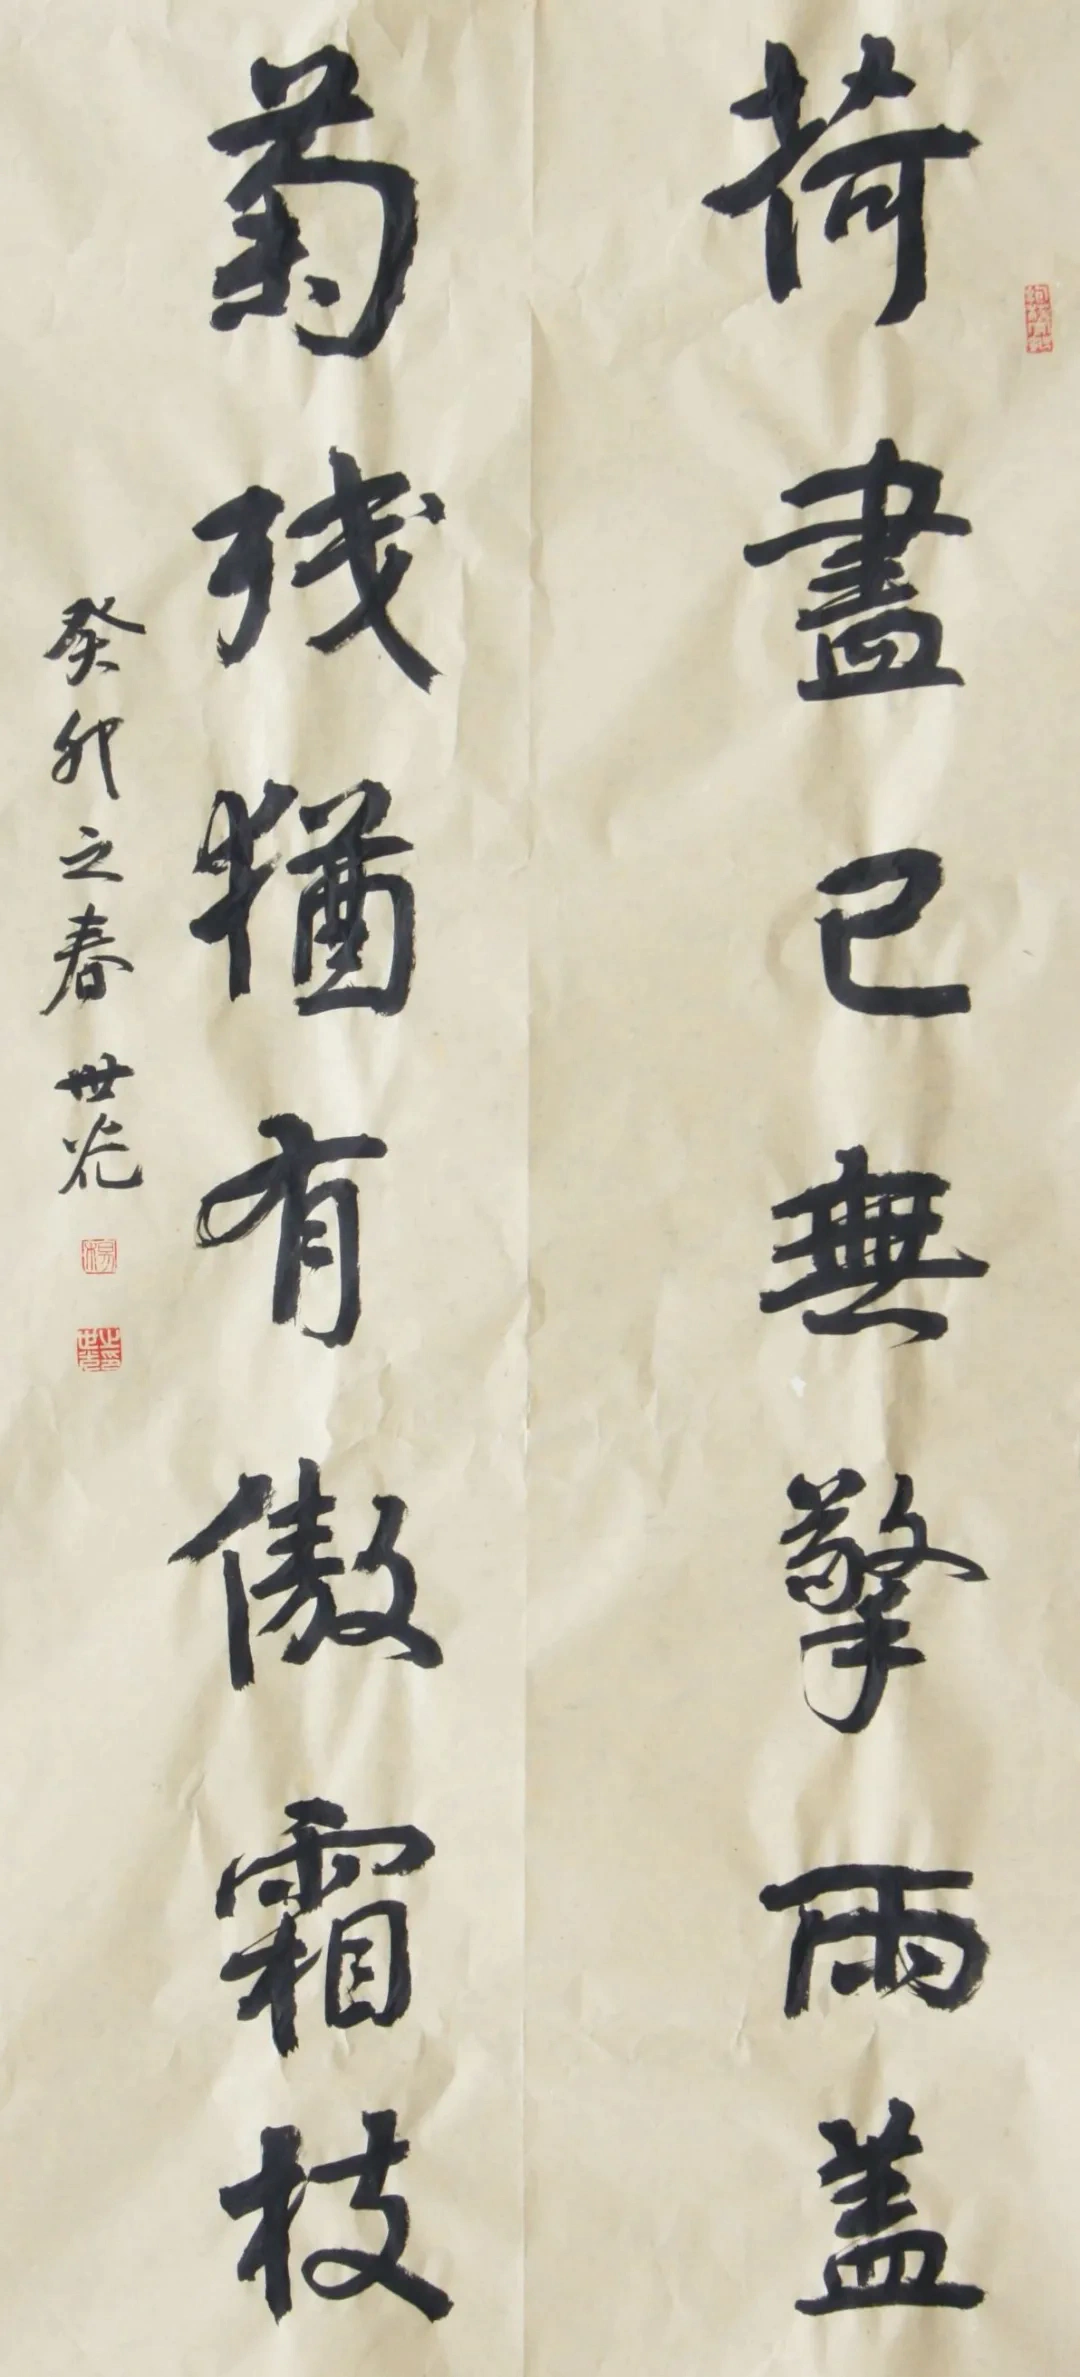 荷盡已無擎雨盖
菊残猶有傲霜枝
癸卯之春 世花